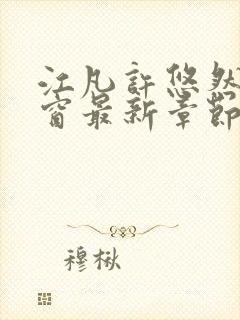 江凡許悠然
窗最新章節
穆楸